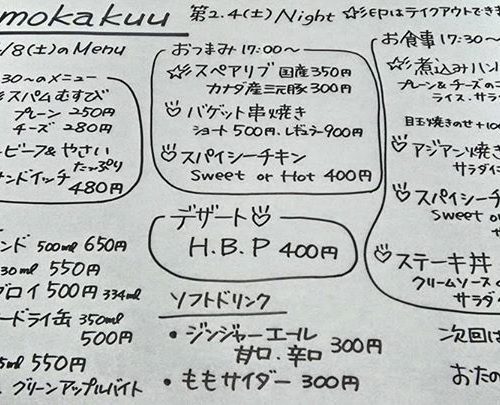 mokakuu 第2.4(土)Night ☆印はテイクアウトできま
/8(土)のMenu
30〜のメニュー
スパムむすび
プレーン 250円
チーズ 280円
ビーフ&やさい
たっぷり
サンドイッチ 480円
おつまみ 17:00〜
☆スペアリブ 国産350円
カナダ産三元豚 300円
バゲット串焼き
ショート500円、レギュラー900円
スパイシーチキン
Sweet or Hot 400円
デザート
H.B.P 400円
お食事 17:30〜
☆煮込みハン
プレーン&チーズの
ライス、サラ
目玉焼きのせ+10
アジアン焼き
サラダ
スパイシーチ
Sweet o
サ
ステーキ丼
クリームソース
サラダ
ンド 500ml 650円
30ml 550円
グロイ 500円 334ml
ードライ缶 350ml
500円
5ml 550円
グリーンアップルバイト
ソフトドリンク
・ジンジャーエール
甘口、辛口 300円
・ももサイダー 300円
次回は
おたの